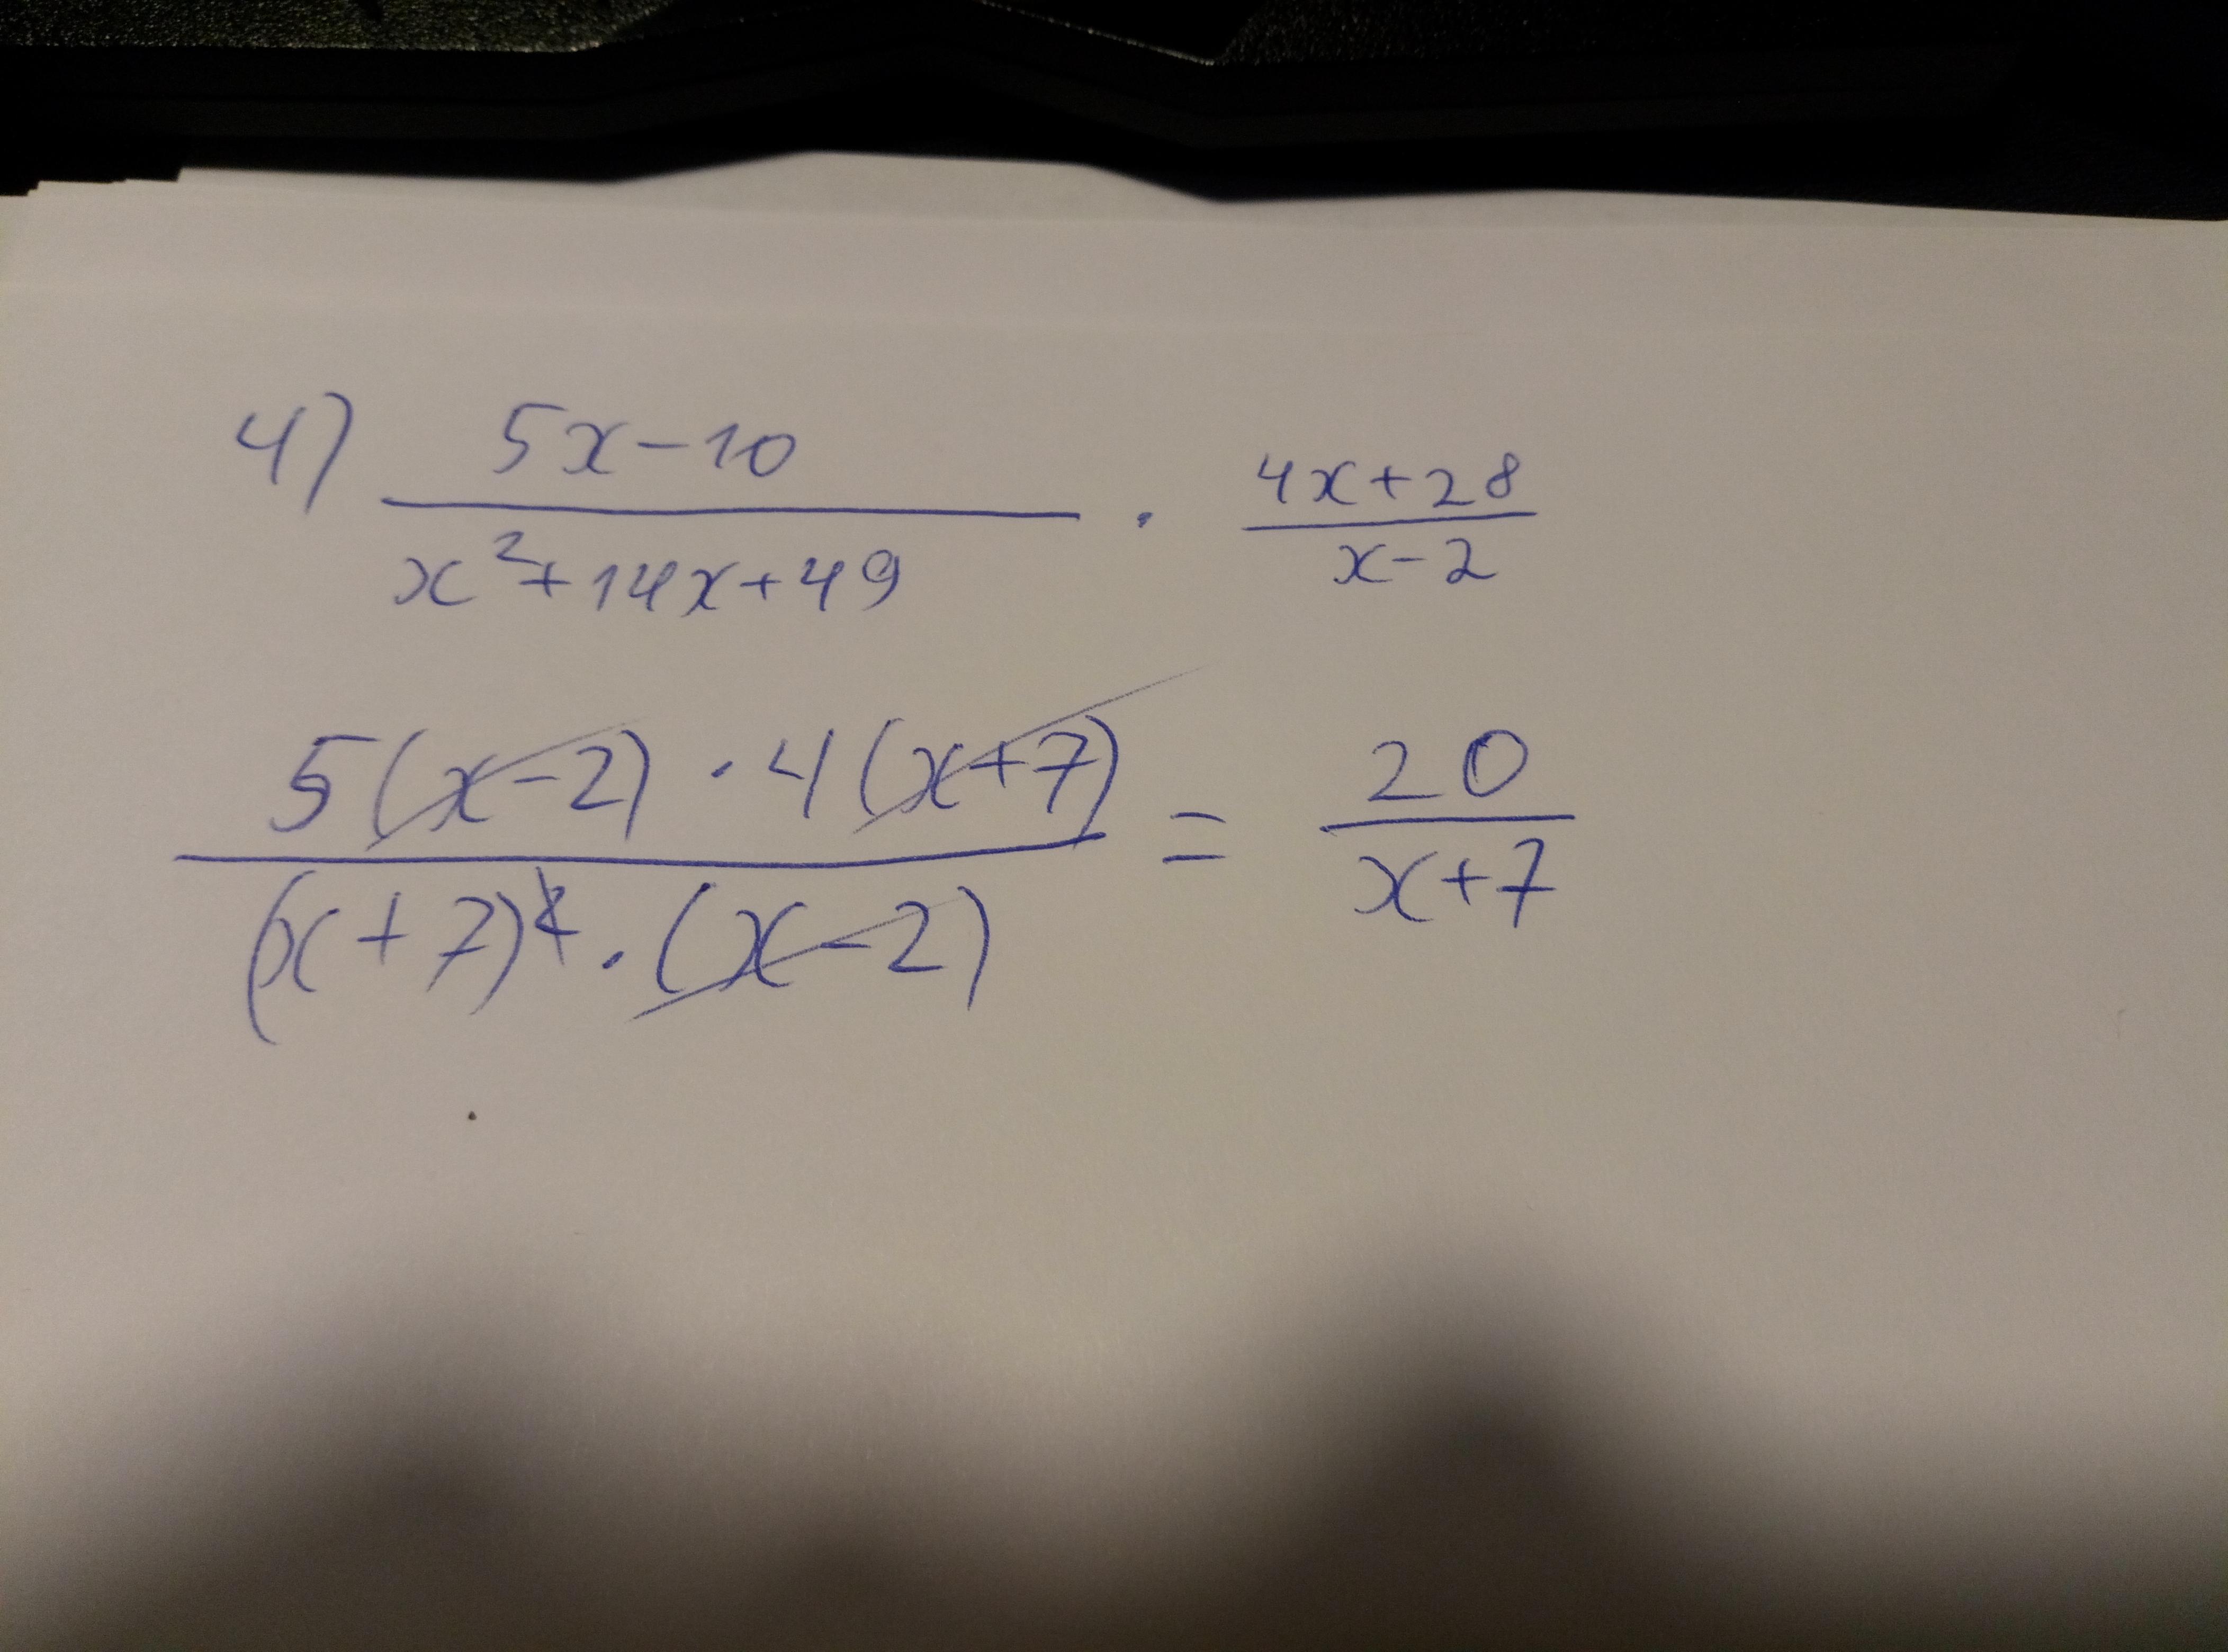 4) (5x-10)/(x²+14x+49) · (4x+28)/(x-2)
(5(x-2) · 4(x+7))/((x+7)² · (x-2)) = 20/(x+7)